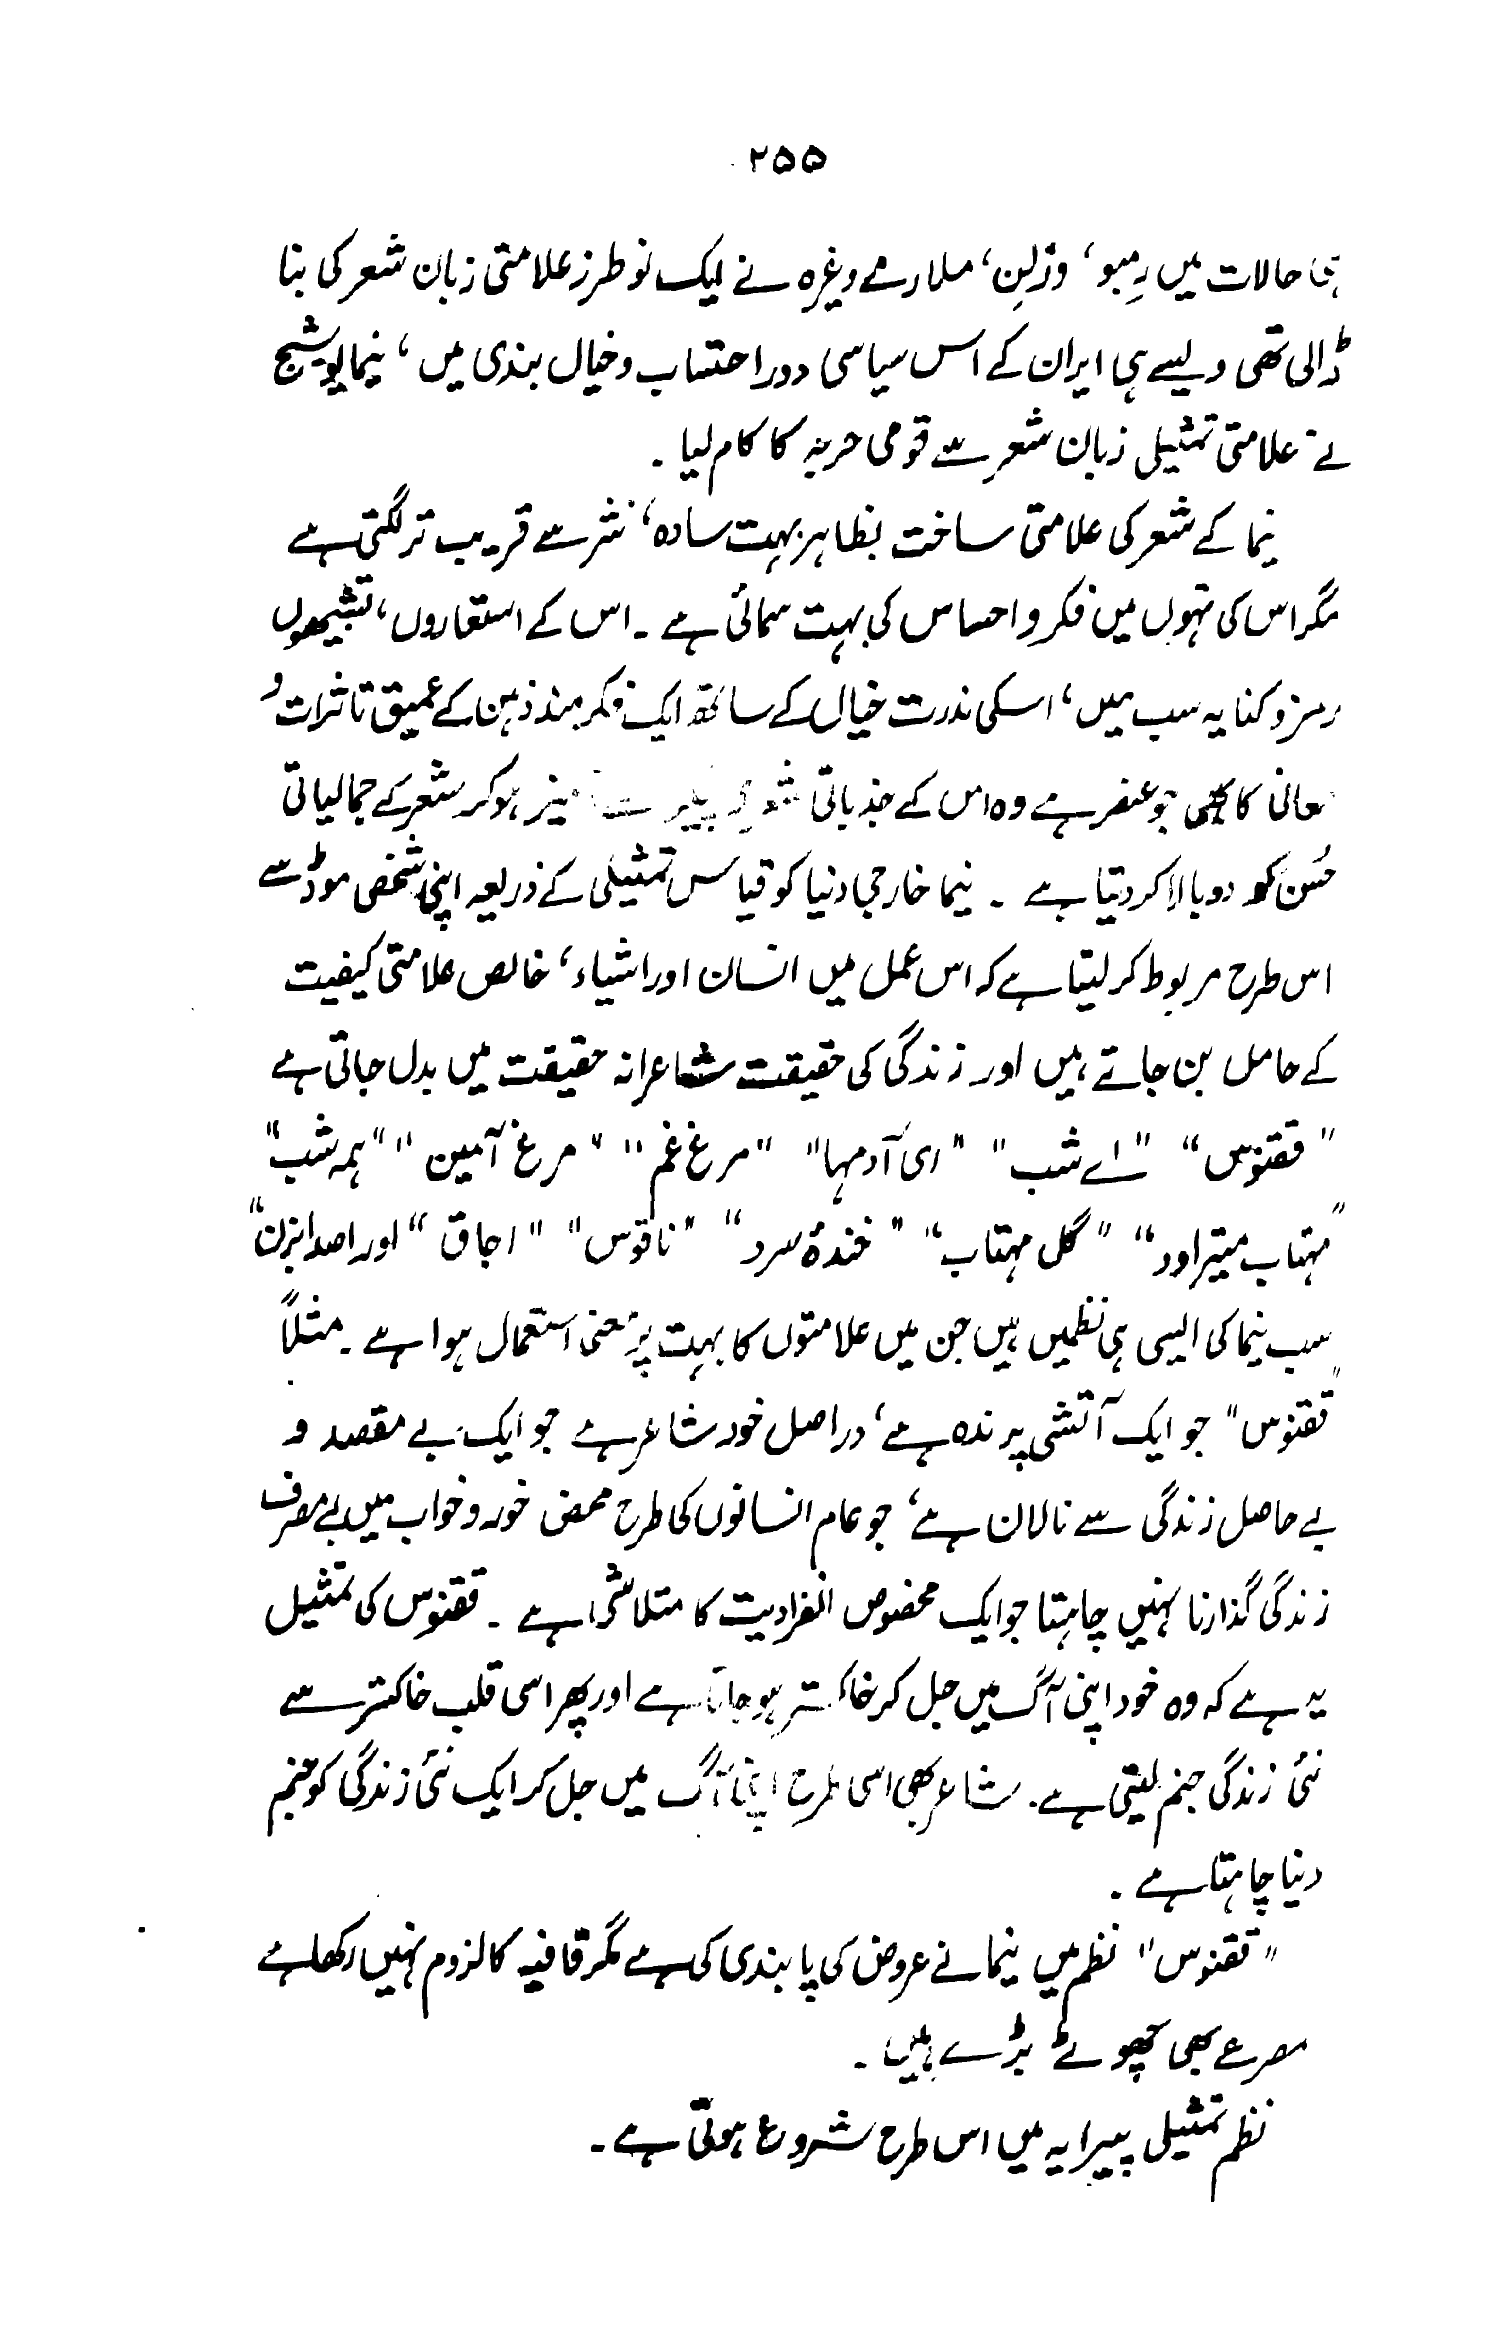 ۲۵۵
ہی حالات میں رِمبو، ورلین، ملارمے وغیرہ نے ایک نو طرز علامتی زبان شعر کی بنا
ڈالی تھی ویسے ہی ایران کے اس سیاسی دور احتساب و خیال بندی میں، نیما یوشیج
نے علامتی تمثیلی زبان شعر سے قومی حربہ کا کام لیا۔
نیما کے شعر کی علامتی ساخت بظاہر بہت سادہ، نثر سے قریب تر لگتی ہے
مگر اس کی تہوں میں فکر و احساس کی بہت سمائی ہے۔ اس کے استعاروں، تشبیہوں
رمز و کنایہ سب میں، اسکی ندرت خیال کے ساتھ ایک فکر مند ذہن کے عمیق تاثرات و
معانی کا بھی جو عنصر ہے وہ اس کے جذباتی ہوکر شعر کے جمالیاتی
حُسن کو دوبالا کر دیتا ہے ۔ نیما خارجی دنیا کو قیاس تمثیلی کے ذریعہ اپنی شخصی موڈ سے
اس طرح مربوط کر لیتا ہے کہ اس عمل میں انسان اور اشیاء، خالص علامتی کیفیت
کے حامل بن جاتے ہیں اور زندگی کی حقیقت شاعرانہ حقیقت میں بدل جاتی ہے
"ققنوس" "اے شب" "ای آدمہا" "مرغ غم" "مرغ آمین" "ہمہ شب"
"مہتاب میتراود" "گل مہتاب" "خندۂ سرد" "ناقوس" "اجاق" اور
سب نیما کی ایسی ہی نظمیں ہیں جن میں علامتوں کا بہت پر معنی استعمال ہوا ہے۔ مثلاً
"ققنوس" جو ایک آتشی پرندہ ہے، دراصل خود شاعر ہے جو ایک بے مقصد و
بے حاصل زندگی سے نالان ہے، جو عام انسانوں کی طرح محض خور و خواب میں بے مصرف
زندگی گذارنا نہیں چاہتا جو ایک مخصوص انفرادیت کا متلاشی ہے ۔ ققنوس کی تمثیل
یہ ہے کہ وہ خود اپنی آگ میں جل کر خاکستر ہو جاتا ہے اور پھر اسی قلب خاکستر سے
نئی زندگی جنم لیتی ہے۔ شاعر بھی اسی طرح اپنی آگ میں جل کر ایک نئی زندگی کو جنم
دینا چاہتا ہے ۔
"ققنوس" نظم میں نیما نے عروض کی پابندی کی ہے مگر قافیہ کا لزوم نہیں رکھا ہے
مصرعے بھی چھوٹے بڑے ہیں ۔
نظم تمثیلی پیرایہ میں اس طرح شروع ہوتی ہے۔